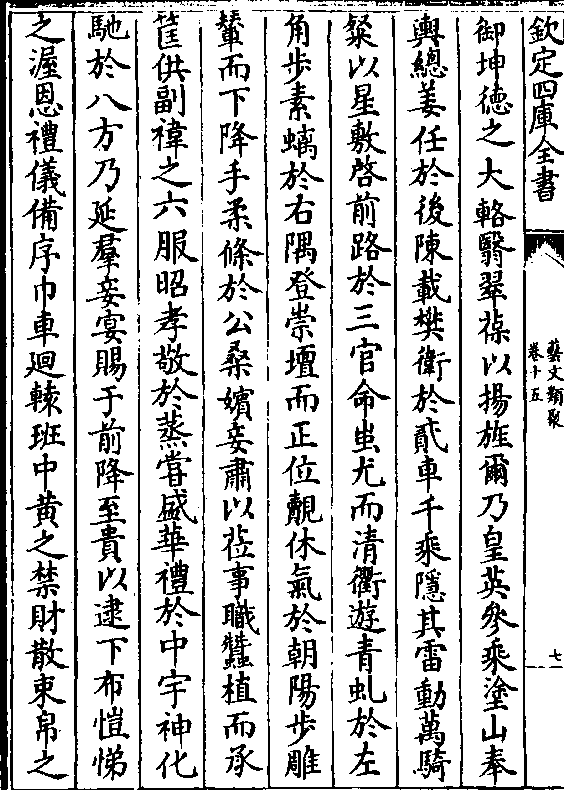 欽定四庫全書
藝文類聚
卷十五
七
御坤德之大輅翳翠葆以揚旌爾乃皇英參乘塗山奉
輿總姜任於後陳載樊衛於貳車千乘隱其雷動萬騎
粲以星敷啓前路於三官命蚩尤而清衢遊青虬於左
角步素螭於右隅登崇壇而正位覿休氣於朝陽步雕
輦而下降手柔條於公桑嬪妾肅以蒞事職蠶植而承
筐供副褘之六服昭孝敬於蒸嘗盛華禮於中宇神化
馳於八方乃延羣妾宴賜于前降至貴以逮下布愷悌
之渥恩禮儀備序巾車廻轅班中黄之禁財散束帛之